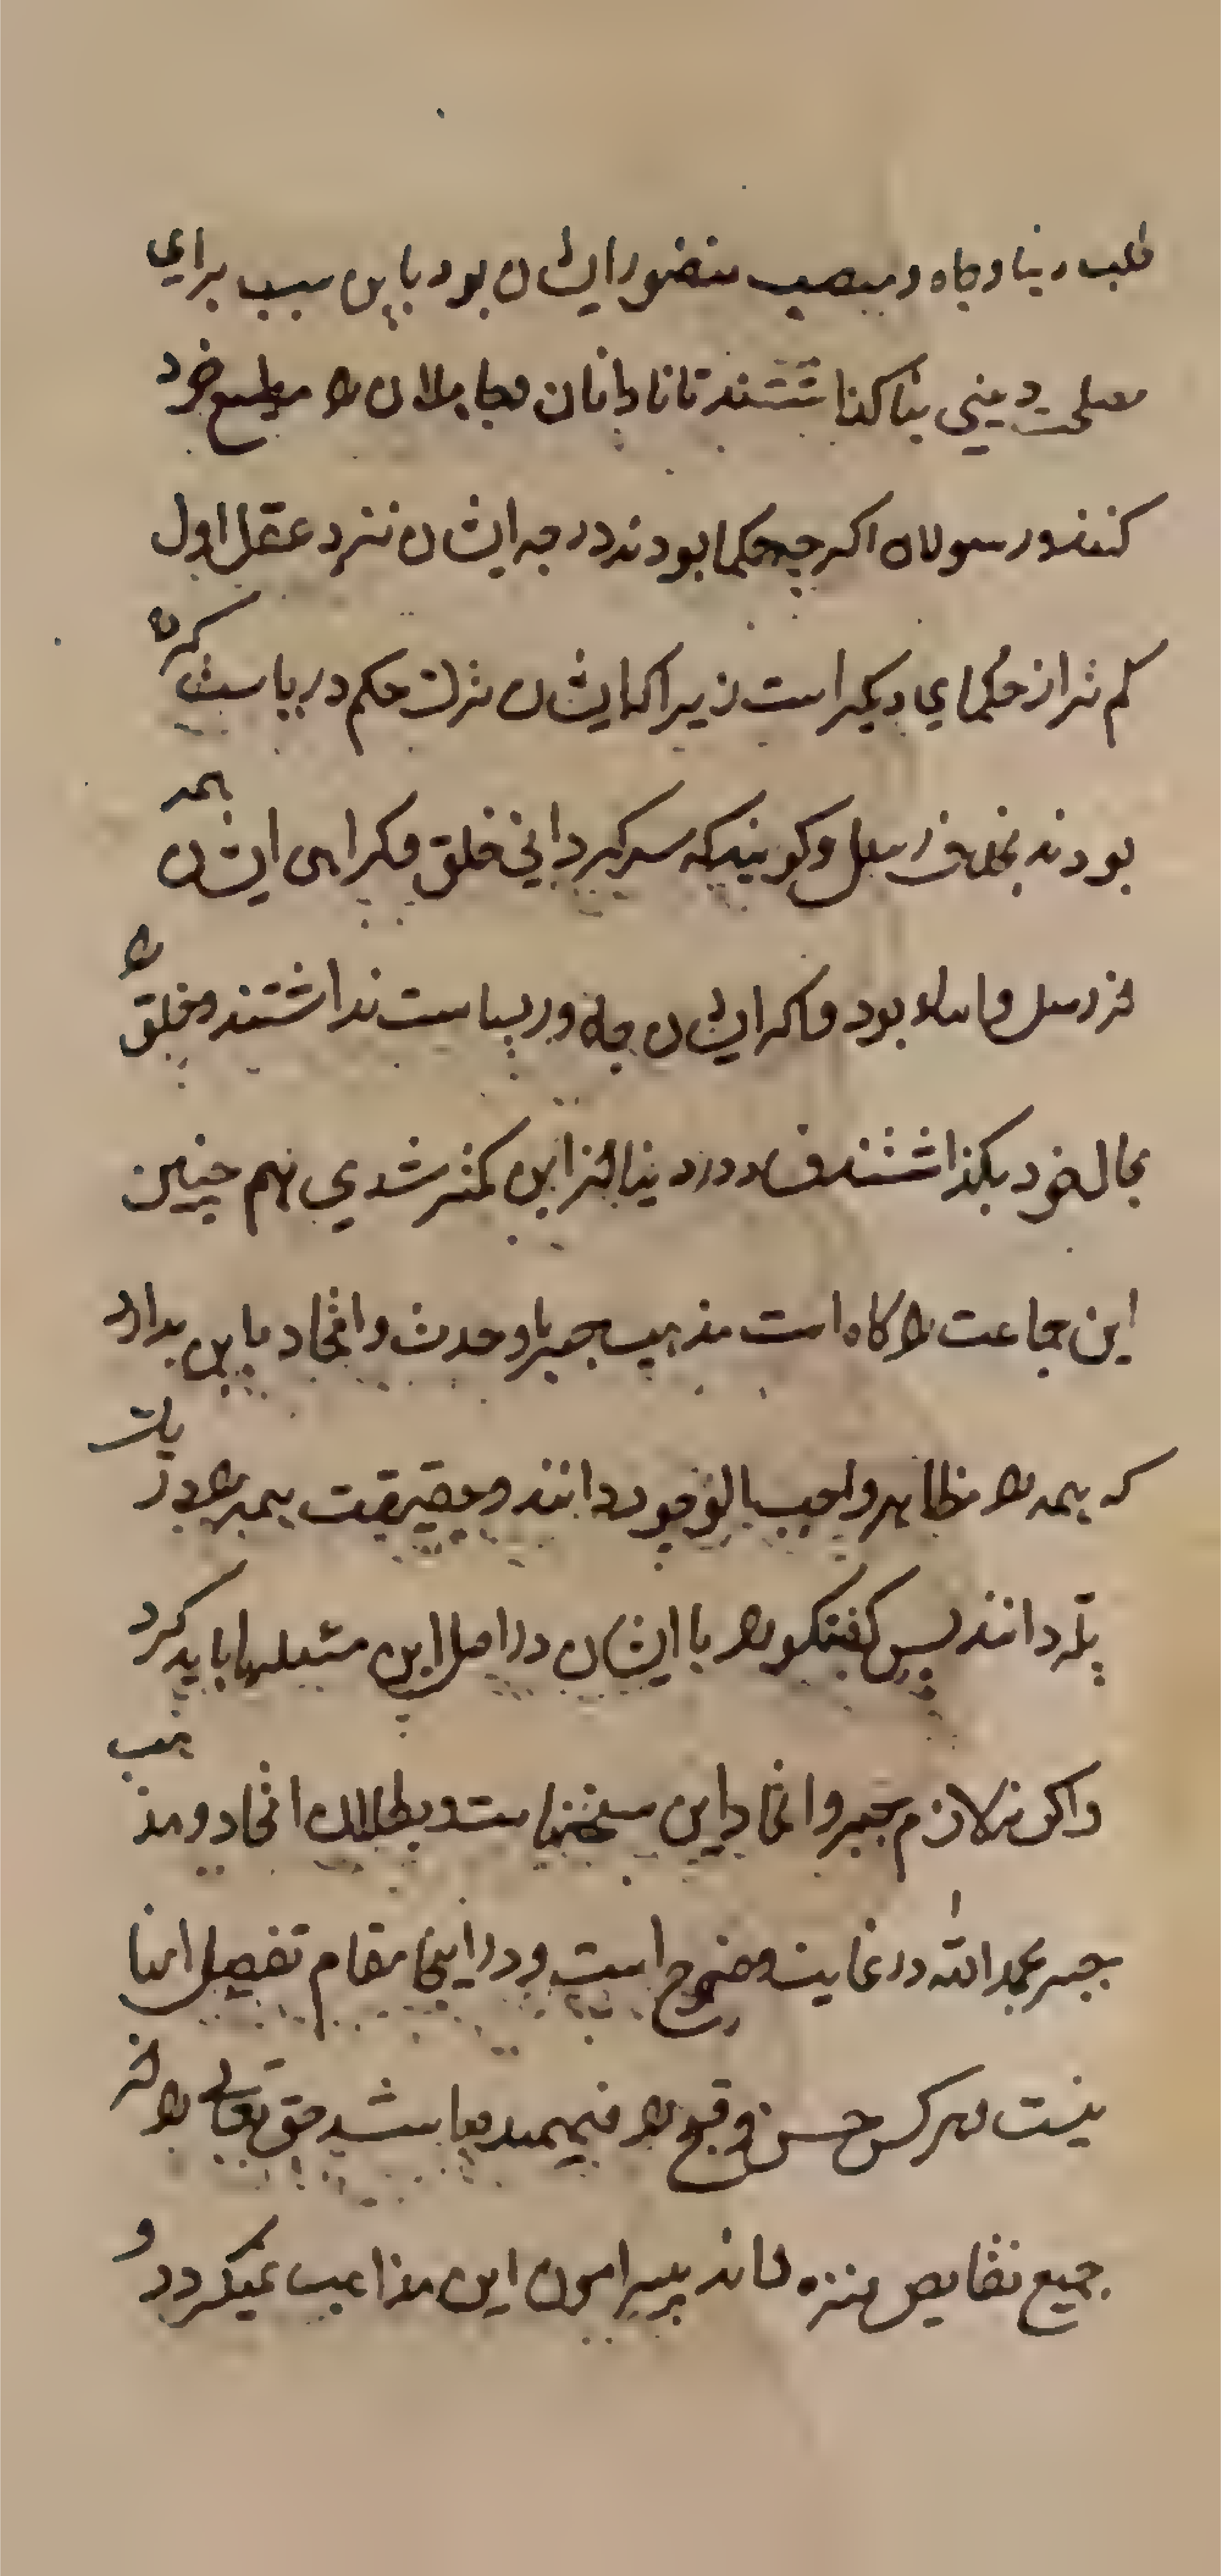 طلب دینا و جاه و منصب منضور ایشان بود باین سبب برای
مصلحت دینی بنا کذاشتند تا نادانان و جاهلان را مطیع خود
کنند و رسولان اکر چه حکما بودند درجه ایشان نزد عقل اول
کم تر از حکمای دیکر است زیرا که ایشان ترک حکم و ریاست کرده
بودند بخلاف رسل و کویند که سرکردانی خلق و کمراهی ایشان همه
از رسل و انبیا بود و اکر ایشان جاه و ریاست نداشتند و خلق را
بحال خود بکذاشتند فساد در دینا از این کمتر شدی و هم چنین
این جماعت را کاه است مذهب جبر یا وحدت و اتحاد باین بدارد
که همه را مظاهر واجب بالوجود دانند و حقیقت همه را در یک
پله دانند پس کفتکو را با ایشان در اصل این مسئلها باید کرد
و اکر تلازم جبر و اتحاد این سخنها است و بطلان اتحاد و مذهب
جبر بحمد الله در غایت وضوح است و در اینجا مقام تفصیل اینها
نیست و هر کس حسن و قبح را فهمیده باشد حق تعالی را از
جمیع نقایص منزه داند پیرامون این مذاهب نمیکردد و